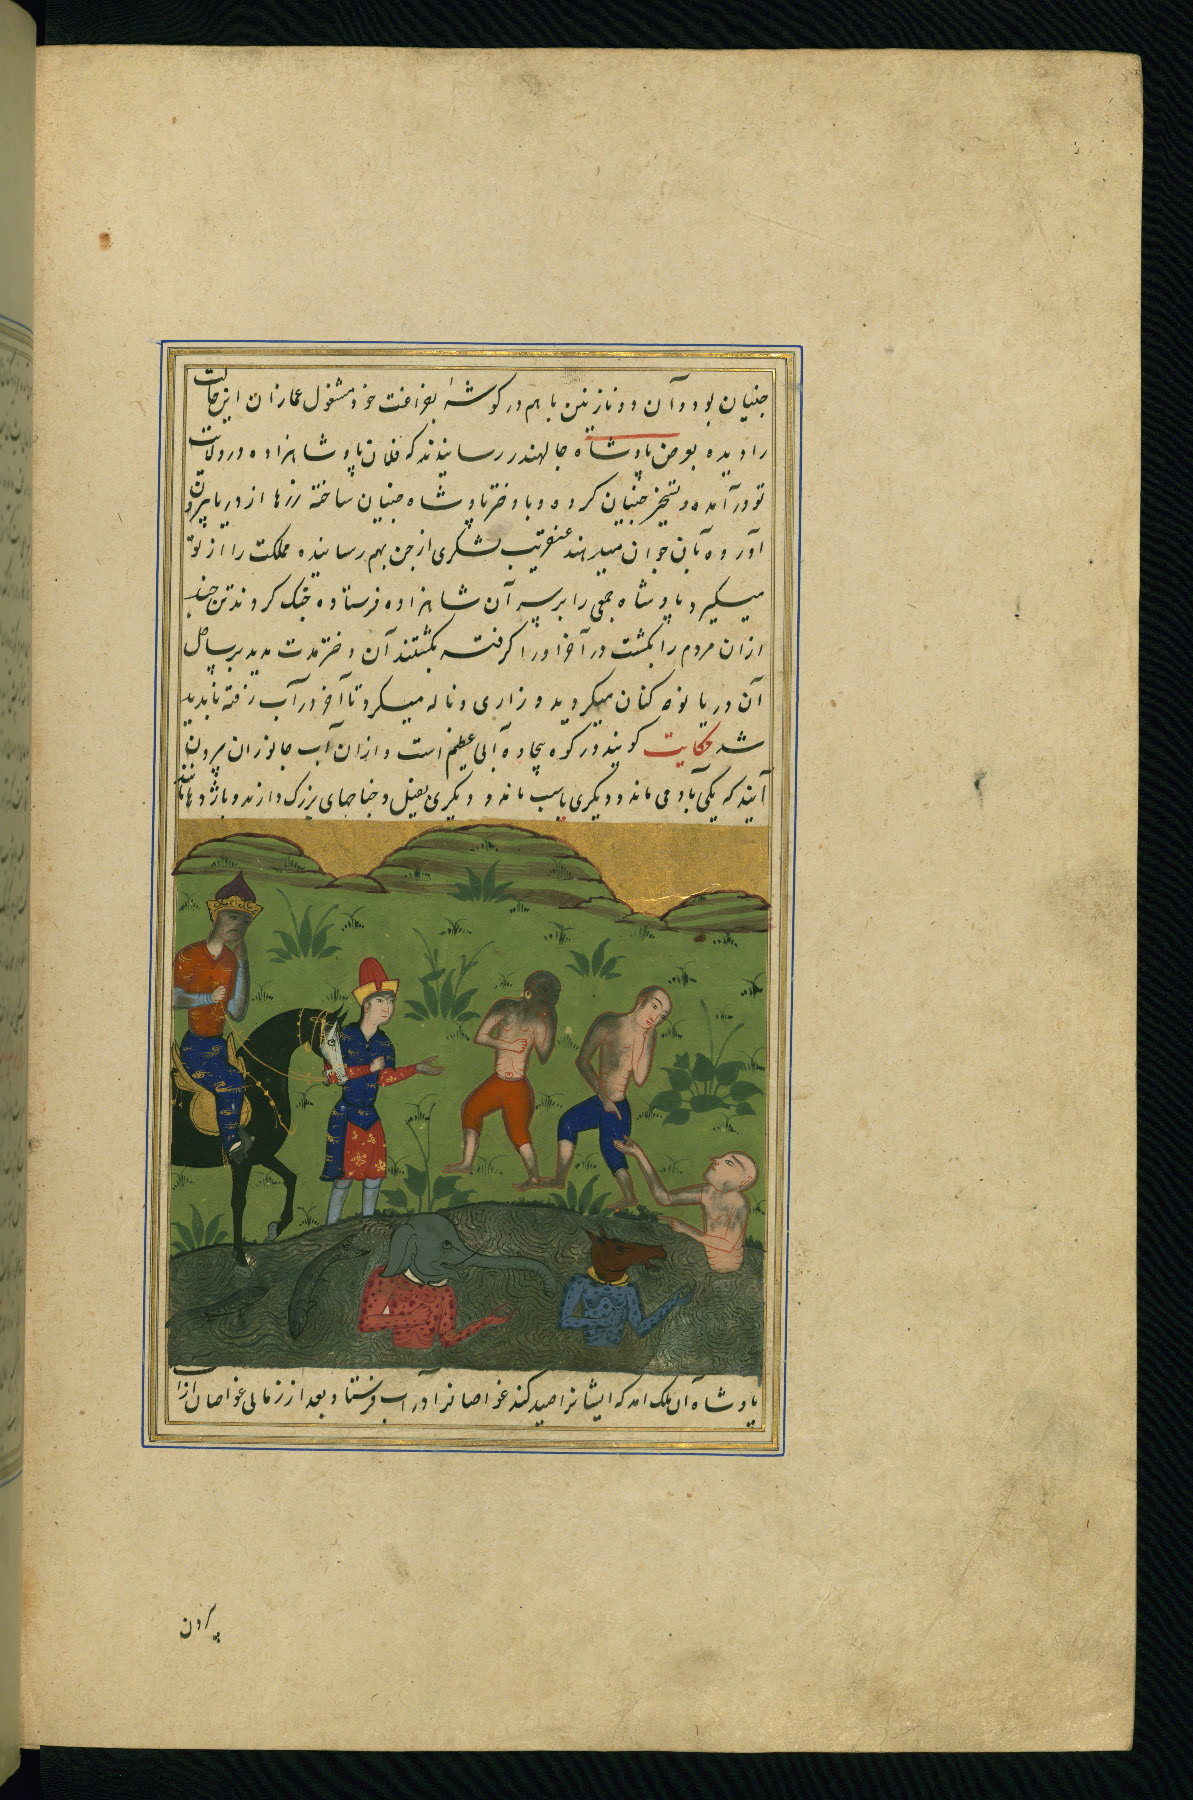 جنیان بود و آن دو نازنین با هم در کوشهٔ بفراغت خود مشغول عمازان این حالت
را دیده بعرض پادشاه جالهندر رسانیدند که فلان پادشاهزاده در ولایت
تو در آمده و تسخیر جنیان کرده و با دختر پادشاه جنیان ساخته رزها از دریا بیرون
آورده بآن جوان میدهند عنقریب لشکری از جن بهم رسانیده مملکت را از تو
میکیرد پادشاه جمعی را بر سر آن شاهزاده فرستاده جنک کردند تن چند
ازان مردم را بکشت در آخر او را کرفته بکشتند آن دختر مدت مدید بر ساحل
آن دریا نوحه کنان میکردید و زاری و ناله میکرد تا آخر در آب رفته ناپدید
شد حکایت کویند در کوه بیجاده آبی عظیم است و ازان آب جانوران بیرون
آیند که یکی بآدمی ماند و دیکری باسب ماند و دیکری بفیل و جناحهای بزرک دارند و باژدها مانند
پادشاه آن ملک امد که ایشانرا صید کند غواصانرا در آب فرستاد بعد از زمانی غواصان ازان
بیرون